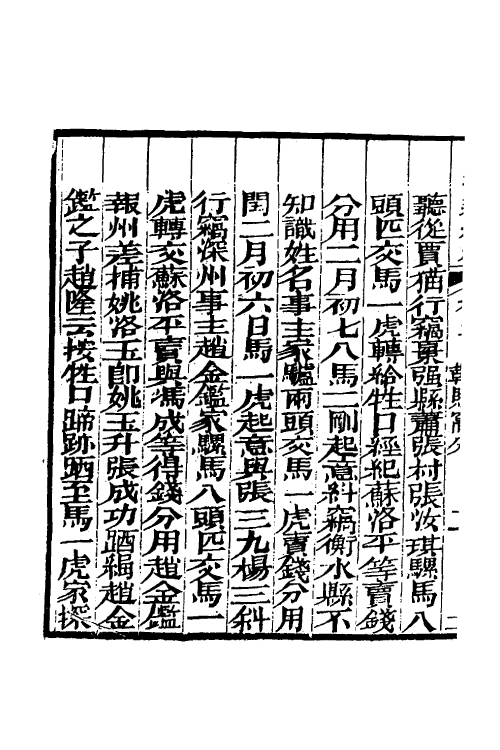 聽從賈猫行竊棗强縣蕭張村張汝琪騾馬八
頭匹交馬一虎轉給牲口經紀蘇洛平等賣錢
分用二月初七八馬二剛起意糾竊衡水縣不
知識姓名事主家驢兩頭交馬一虎賣錢分用
閏二月初六日馬一虎起意與張三九楊三糾
行竊深州事主趙金鑑家騾馬八頭匹交馬一
虎轉交蘇洛平賣與馮成等得錢分用趙金鑑
報州差捕姚洛玉卽姚玉升張成功跴緝趙金
鑑之子趙隆云按牲口蹄跡跴至馬一虎家探